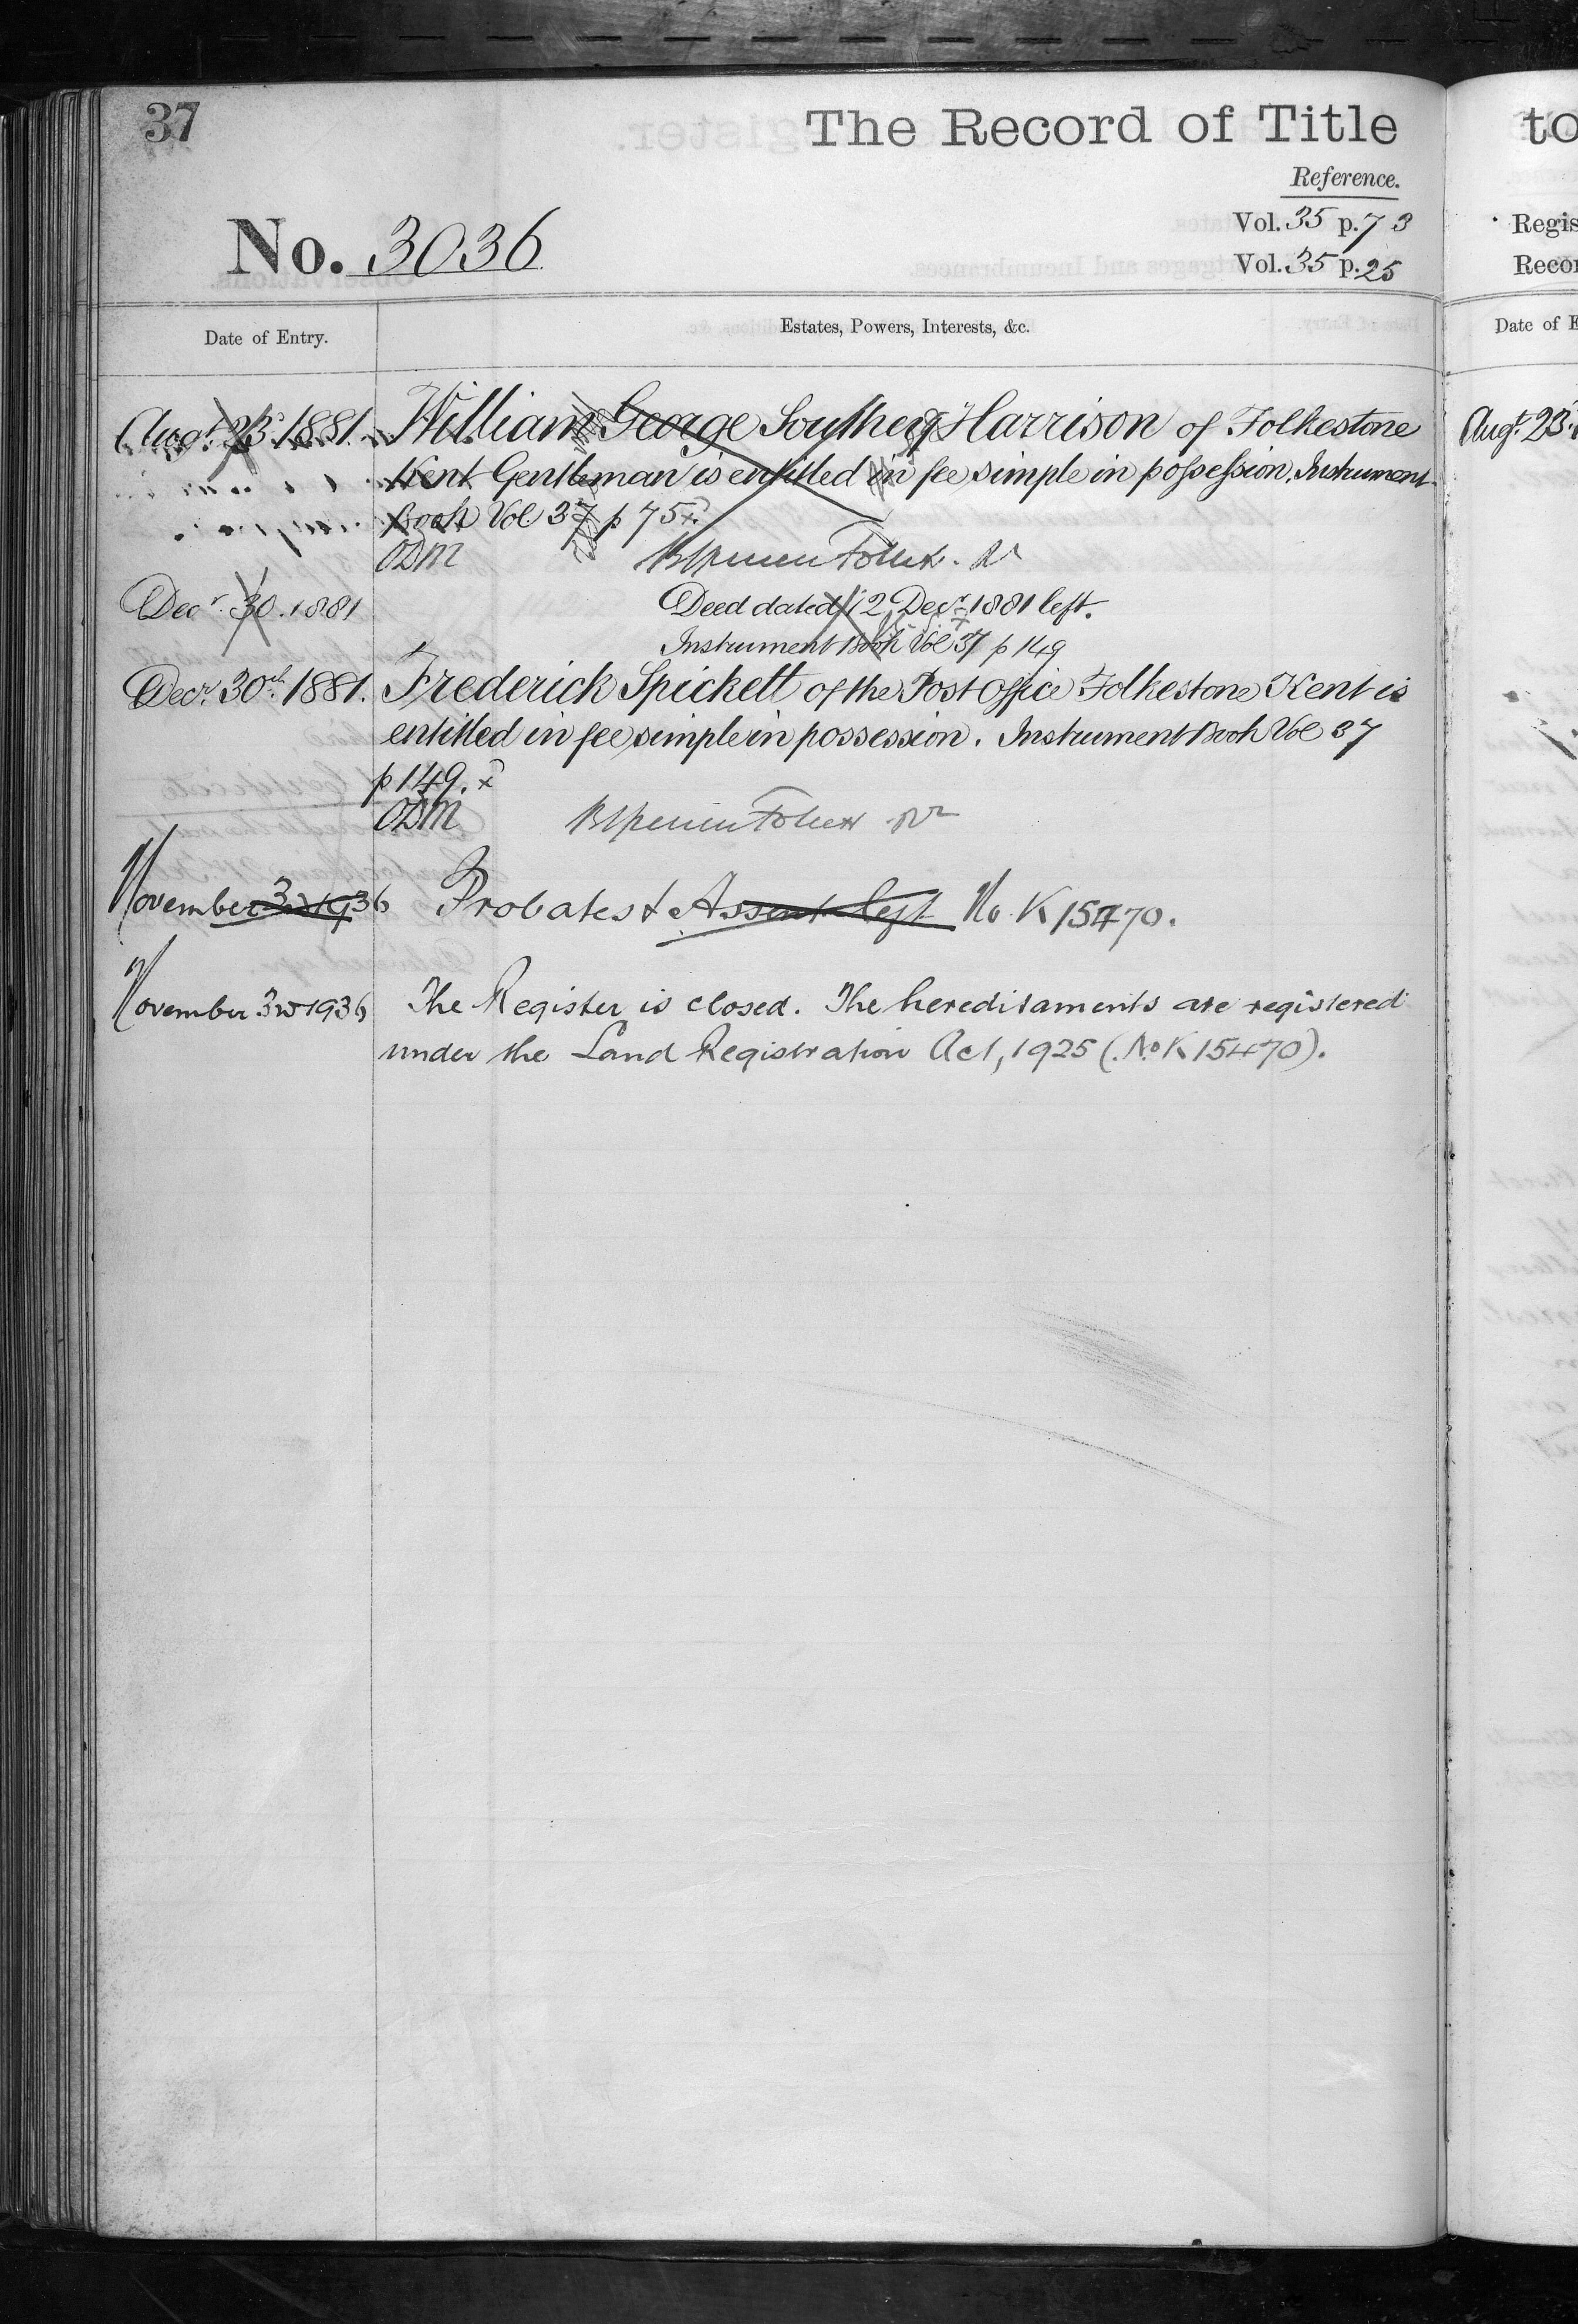 37
The Record of Title
Reference.
No. 3036
Vol. 35 p. 73
Vol. 35 p. 25
Date of Entry.
Estates, Powers, Interests, &c.
Augt. 23d. 1881. William George Southey Harrison of Folkestone
Kent Gentleman is entitled in fee simple in possession. Instrument
Book Vol. 37 p 75.
ODM
Decr. 30. 1881 Deed dated 12 Decr. 1881 left.
Instrument Book Vol 37 p 149
Decr. 30th. 1881. Frederick Spickett of the Post Office Folkestone Kent is
entitled in fee simple in possession. Instrument Book Vol 37
p 149.
ODM
November 3rd 1936 Probates & Assent left No. K 15470.
November 3rd 1936 The Register is closed. The hereditaments are registered
under the Land Registration Act, 1925 (No K 15470).
to
Regis
Recor
Date of E
Augt. 23